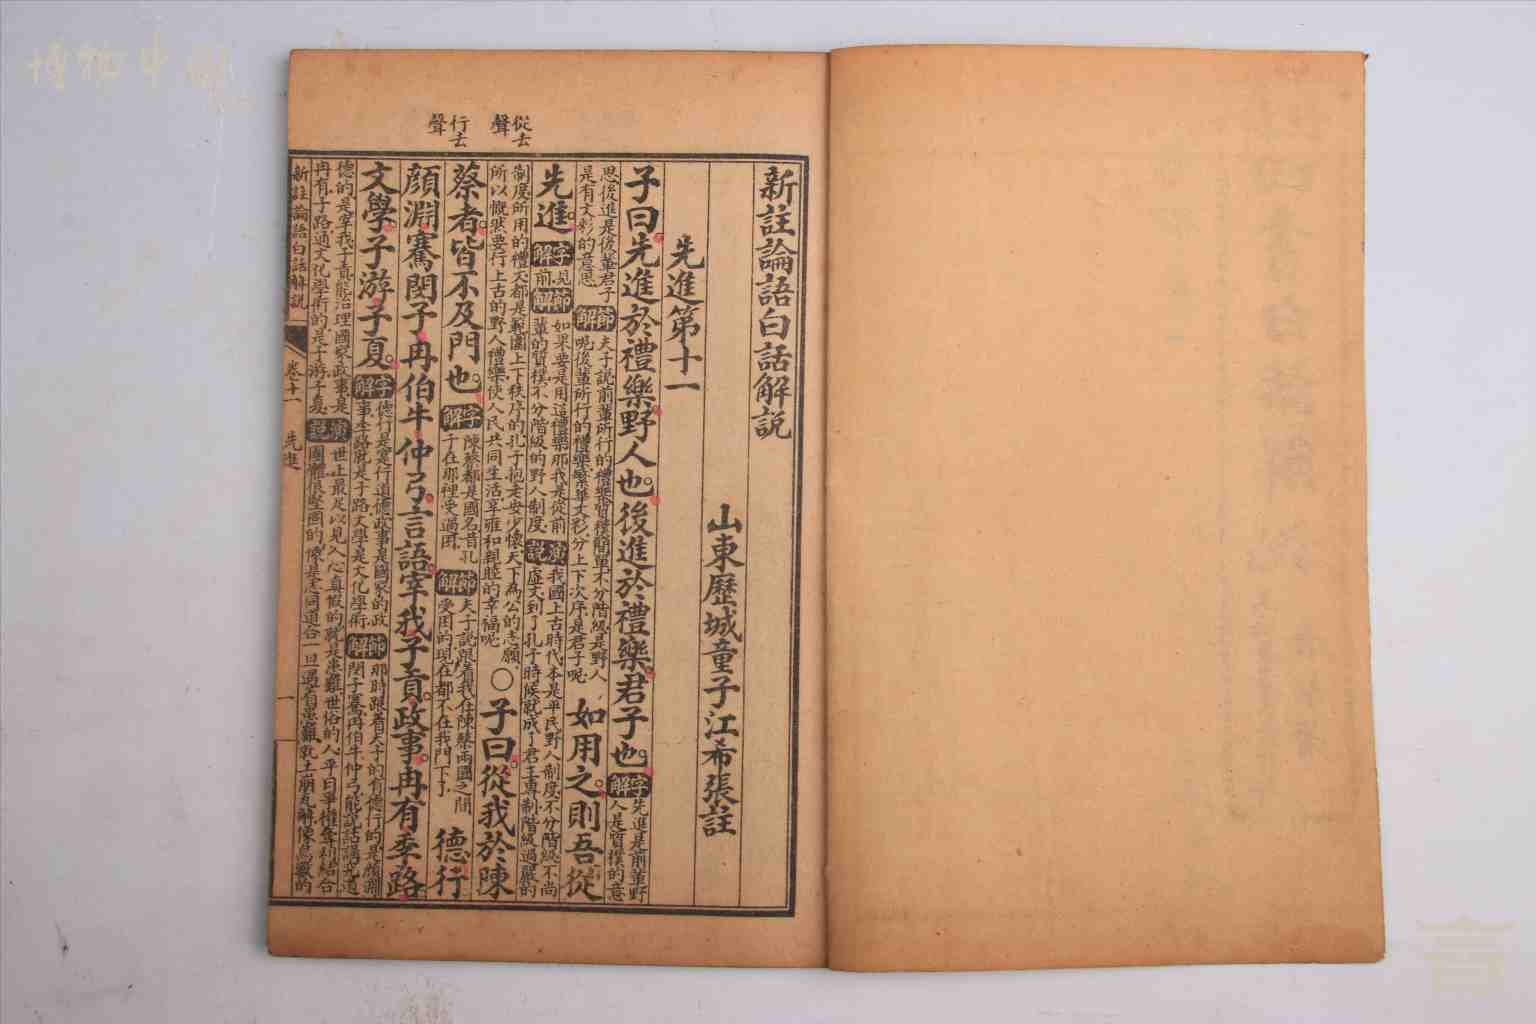 新註論語白話解說
山東歷城童子江希張註
先進第十一
子曰先進於禮樂野人也。後進於禮樂君子也。字解先進是前輩野人是質樸的意
思後進是後輩君子是有文彩的意思節解夫子說前輩所行的禮樂質樸簡單不分階級是野人呢後輩所行的禮樂繁華文彩分上下次序是君子呢如用之。則吾從
先進。字解見前節解如果要是用這禮樂那我是從前輩的質樸不分階級的野人制度演說我國上古時代本是平民野人制度不分階級不尚虛文到了孔子時候就成了君王專制階級過嚴的
制度所用的禮文都是範圍上下秩序的孔子抱老安少懷天下為公的志願所以慨然要行上古的野人禮樂使人民共同生活享雍和親睦的幸福呢〇子曰從我於陳
蔡者。皆不及門也。字解陳蔡都是國名昔孔子在那裡受過困節解夫子說跟着我在陳蔡兩國之間受困的現在都不在我門下了德行
顏淵騫閔子冉伯牛仲弓言語宰我子貢。政事。冉有季路
文學。子游子夏。字解德行是實行道德政事是國家的政事季路就是子路文學是文化學術節解那時跟着夫子的有德行的是顏淵閔子騫冉伯牛仲弓能說話講究道
德的是宰我子貢能治理國家政事是冉有子路通文化學術的是子游子夏演說世上最足以見人心真假的就是患難世俗的人平日爭權奪利結合團體很堅固的像是志同道合一旦遇着患難就土崩瓦解像鳥獸的
新註論語白話解說 卷十一 先進 一
從去聲
行去聲
博物中國